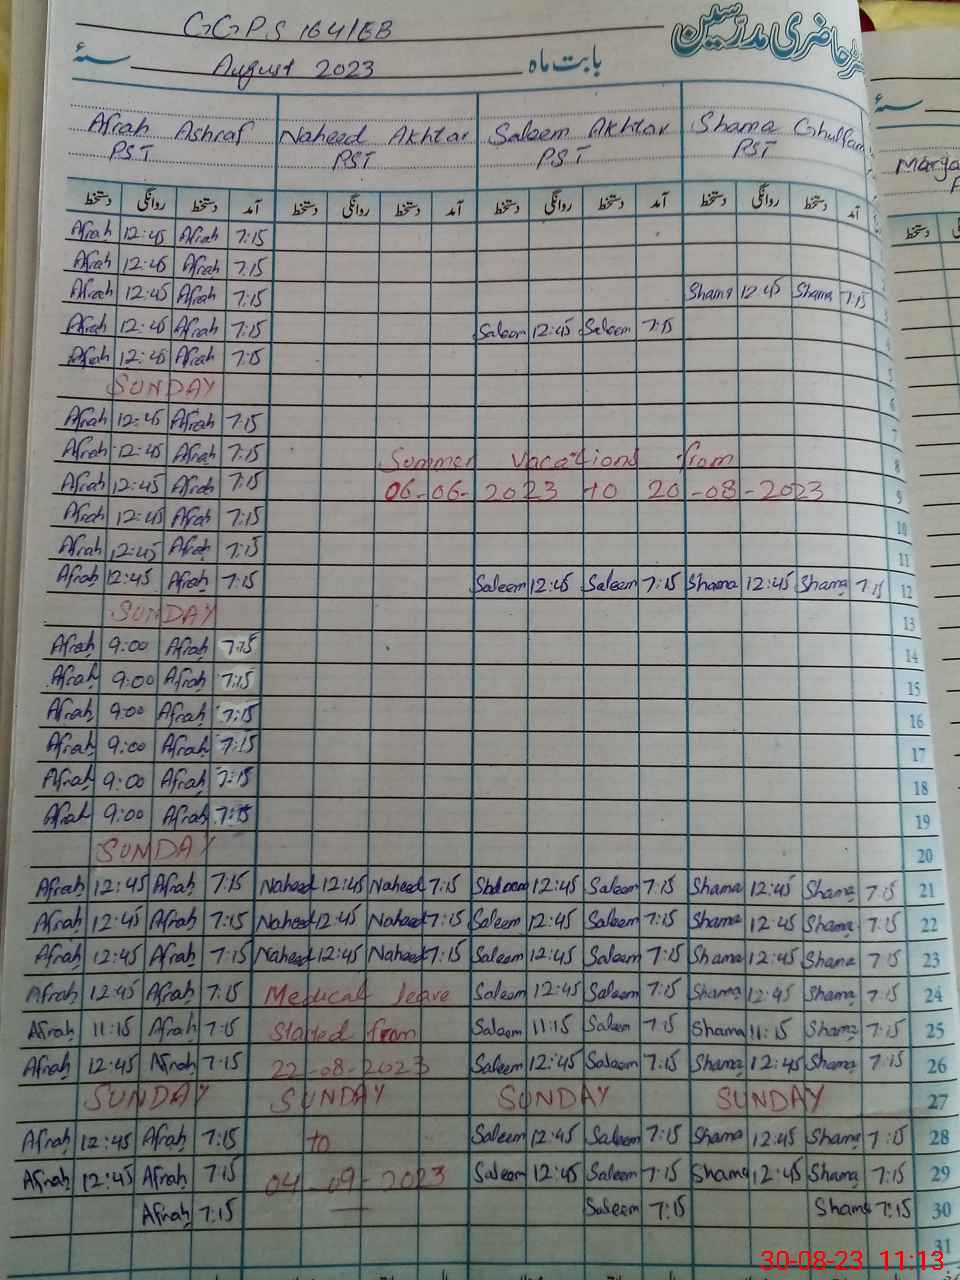 GGPS 164/EB
رجسٹر حاضری مدرسین
August 2023 بابت ماہ سنۂ
Afrah Ashraf Naheed Akhtar Saleem Akhtar Shama Ghulfam
PST PST PST PST
دستخط روانگی دستخط آمد دستخط روانگی دستخط آمد دستخط روانگی دستخط آمد دستخط روانگی دستخط آمد
Afrah 12:45 Afrah 7:15
Afrah 12:45 Afrah 7:15
Afrah 12:45 Afrah 7:15 Shama 12 45 Shama 7:15 3
Afrah 12:45 Afrah 7:15 Saleem 12:45 Saleem 7:15 4
Afrah 12:45 Afrah 7:15 5
SUNDAY 6
Afrah 12:45 Afrah 7:15 7
Afrah 12:45 Afrah 7:15 Summer vacations from 8
Afrah 12:45 Afrah 7:15 06-06-2023 to 20-08-2023 9
Afrah 12:45 Afrah 7:15 10
Afrah 12:45 Afrah 7:15 11
Afrah 12:45 Afrah 7:15 Saleem 12:45 Saleem 7:15 Shama 12:45 Shama 7:15 12
SUNDAY 13
Afrah 9:00 Afrah 7:15 14
Afrah 9:00 Afrah 7:15 15
Afrah 9:00 Afrah 7:15 16
Afrah 9:00 Afrah 7:15 17
Afrah 9:00 Afrah 7:15 18
Afrah 9:00 Afrah 7:15 19
SUNDAY 20
Afrah 12:45 Afrah 7:15 Naheed 12:45 Naheed 7:15 Saleem 12:45 Saleem 7:15 Shama 12:45 Shama 7:15 21
Afrah 12:45 Afrah 7:15 Naheed 12:45 Naheed 7:15 Saleem 12:45 Saleem 7:15 Shama 12:45 Shama 7:15 22
Afrah 12:45 Afrah 7:15 Naheed 12:45 Naheed 7:15 Saleem 12:45 Saleem 7:15 Shama 12:45 Shama 7:15 23
Afrah 12:45 Afrah 7:15 Medical leave Saleem 12:45 Saleem 7:15 Shama 12:45 Shama 7:15 24
Afrah 11:15 Afrah 7:15 Started from Saleem 11:15 Saleem 7:15 Shama 11:15 Shama 7:15 25
Afrah 12:45 Afrah 7:15 22-08-2023 Saleem 12:45 Saleem 7:15 Shama 12:45 Shama 7:15 26
SUNDAY SUNDAY SUNDAY SUNDAY 27
Afrah 12:45 Afrah 7:15 to Saleem 12:45 Saleem 7:15 Shama 12:45 Shama 7:15 28
Afrah 12:45 Afrah 7:15 04-09-2023 Saleem 12:45 Saleem 7:15 Shama 12:45 Shama 7:15 29
Afrah 7:15 Saleem 7:15 Shama 7:15 30
31
30-08-23 11:13
سنۂ
دستخط